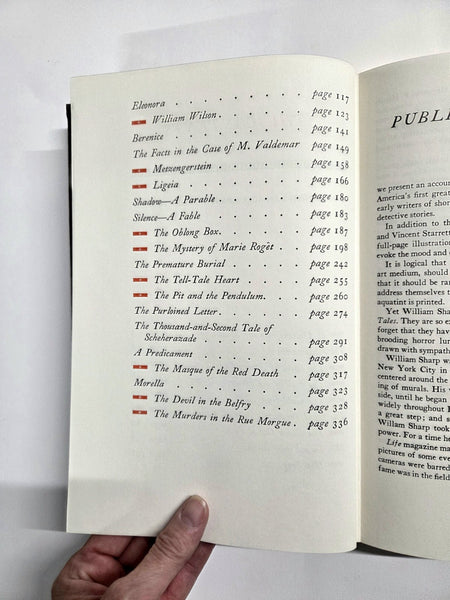 Eleonora . . . . . . . . page 117
William Wilson . . . . . . page 123
Berenice . . . . . . . . page 141
The Facts in the Case of M. Valdemar page 149
Metzengerstein . . . . . . page 158
Ligeia . . . . . . . . page 166
Shadow—A Parable . . . . . . page 180
Silence—A Fable . . . . . . page 183
The Oblong Box . . . . . . page 187
The Mystery of Marie Rogêt . . . page 198
The Premature Burial . . . . . page 242
The Tell-Tale Heart . . . . . page 255
The Pit and the Pendulum . . . . page 260
The Purloined Letter . . . . . page 274
The Thousand-and-Second Tale of
Scheherazade . . . . . . page 291
A Predicament . . . . . . . page 308
The Masque of the Red Death . . page 317
Morella . . . . . . . . page 323
The Devil in the Belfry . . . . page 328
The Murders in the Rue Morgue . page 336
PUBLI
we present an accoun
America's first great
early writers of short
detective stories.
In addition to th
and Vincent Starrett
full-page illustration
evoke the mood and
It is logical that
art medium, should
that it should be rar
address themselves t
aquatint is printed.
Yet William Sharp
Tales. They are so ex
forget that they have
brooding horror lur
drawn with sympath
William Sharp wa
New York City in
centered around the
ing of murals. His w
side, until he began
widely throughout
a great step; and s
Willam Sharp took
power. For a time he
Life magazine ma
pictures of some eve
cameras were barred
fame was in the field